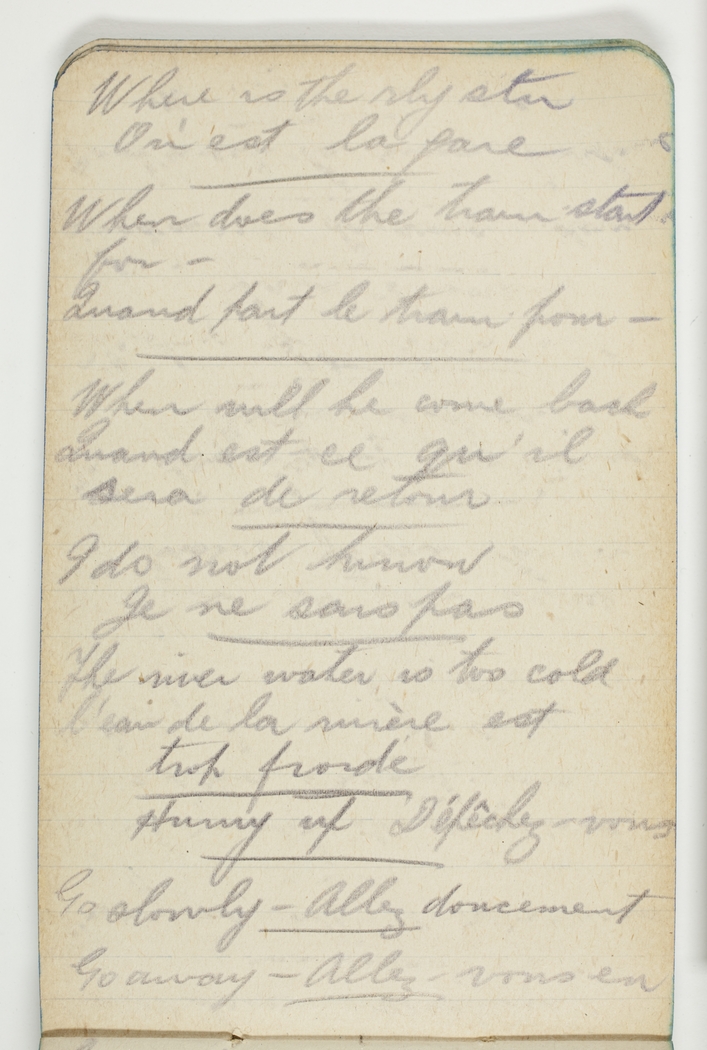 Where is the rly stn
Ou est la gare
When does the train start
for -
Quand part le train pour -
When will he come back
Quand est ce qu'il
sera de retour
I do not know
Je ne sais pas
The river water is too cold
l'eau de la rivière est
trop froide
Hurry up Dépêchez-vous
Go slowly - Allez doucement
Go away - Allez-vous en